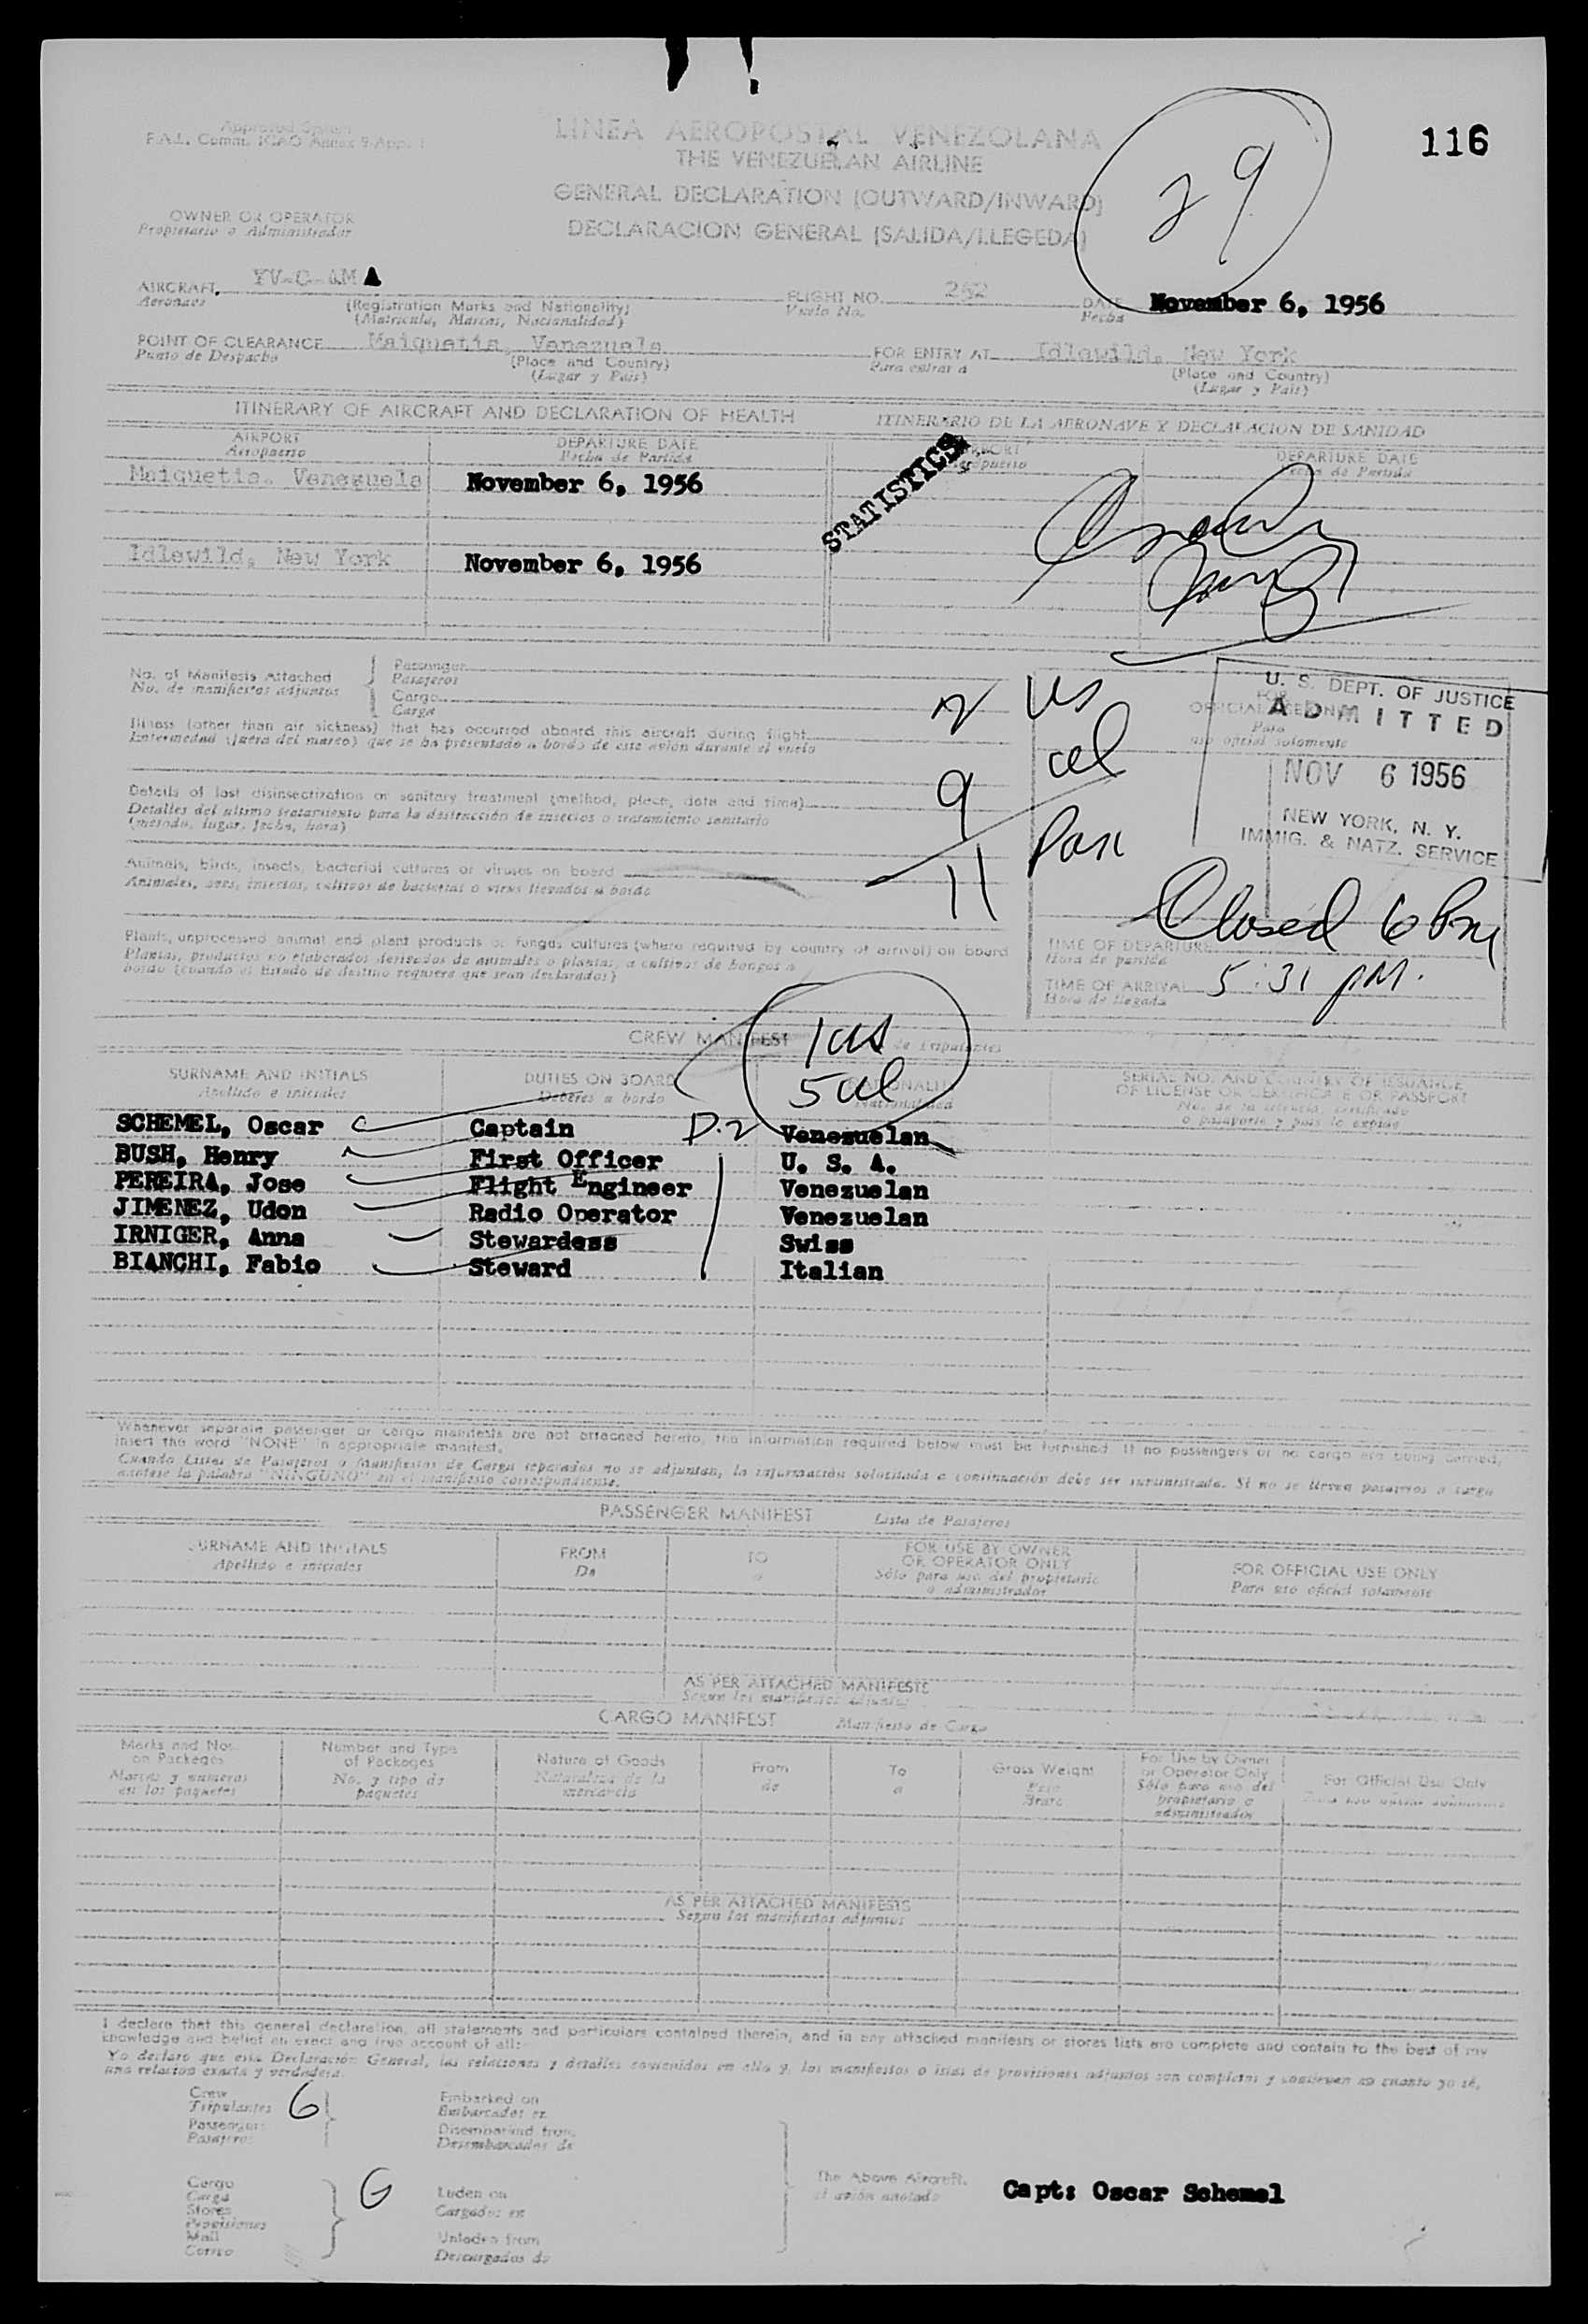 116
Approved System
F.A.L. Comm. ICAO Annex 9-App. 1
LINEA AEROPOSTAL VENEZOLANA
THE VENEZUELAN AIRLINE
GENERAL DECLARATION (OUTWARD/INWARD)
DECLARACION GENERAL (SALIDA/LLEGEDA)
29
OWNER OR OPERATOR
Propietario o Administrador
AIRCRAFT YV-C-AMA FLIGHT NO. 252 DATE November 6, 1956
Aeronave (Registration Marks and Nationality) Vuelo No. Fecha
(Matricula, Marcas, Nacionalidad)
POINT OF CLEARANCE Maiquetia, Venezuela FOR ENTRY AT Idlewild, New York
Punto de Despacho (Place and Country) Para entrar a (Place and Country)
(Lugar y Pais) (Lugar y Pais)
ITINERARY OF AIRCRAFT AND DECLARATION OF HEALTH ITINERARIO DE LA AERONAVE Y DECLARACION DE SANIDAD
AIRPORT DEPARTURE DATE DEPARTURE DATE
Aeropuerto Fecha de Partida Fecha de Partida
STATISTICS
Maiquetia, Venezuela November 6, 1956
Idlewild, New York November 6, 1956
No. of Manifests Attached Passenger
No. de manifiestos adjuntos Pasajeros
Cargo
Carga
2 US
9 al
11 Pax
U. S. DEPT. OF JUSTICE
ADMITTED
NOV 6 1956
NEW YORK, N. Y.
IMMIG. & NATZ. SERVICE
FOR
OFFICIAL USE ONLY
Para
uso oficial solamente
Illness (other than air sickness) that has occurred aboard this aircraft during flight
Enfermedad (fuera del mareo) que se ha presentado a bordo de este avión durante el vuelo
Details of last disinsectization or sanitary treatment (method, place, date and time)
Detalles del ultimo tratamiento para la destrucción de insectos o tratamiento sanitario
(metodo, lugar, fecha, hora)
Animals, birds, insects, bacterial cultures or viruses on board
Animales, aves, insectos, cultivos de bacterias o virus llevados a bordo
Closed 6 Pm
Plants, unprocessed animal and plant products or fungus cultures (where required by country of arrival) on board
Plantas, productos no elaborados derivados de animales o plantas, o cultivos de hongos a
bordo (cuando el Estado de destino requiere que sean declarados)
TIME OF DEPARTURE
Hora de partida
TIME OF ARRIVAL 5:31 PM.
Hora de llegada
CREW MANIFEST de Tripulantes
1 US
5 al
SURNAME AND INITIALS DUTIES ON BOARD NATIONALITY SERIAL NO. AND COUNTRY OF ISSUANCE
Apellido e iniciales Deberes a bordo Nacionalidad OF LICENSE OR CERTIFICATE OR PASSPORT
No. de la licencia, certificado
o pasaporte y pais lo expide
SCHEMEL, Oscar Captain D.2 Venezuelan
BUSH, Henry First Officer U. S. A.
PEREIRA, Jose Flight Engineer Venezuelan
JIMENEZ, Udon Radio Operator Venezuelan
IRNIGER, Anna Stewardess Swiss
BIANCHI, Fabio Steward Italian
Whenever separate passenger or cargo manifests are not attached hereto, the information required below must be furnished. If no passengers or no cargo are being carried,
insert the word "NONE" in appropriate manifest.
Cuando Listas de Pasajeros o Manifiestos de Carga separados no se adjuntan, la información solicitada a continuación debe ser suministrada. Si no se llevan pasajeros o carga
anotese la palabra "NINGUNO" en el manifiesto correspondiente.
PASSENGER MANIFEST Lista de Pasajeros
SURNAME AND INITIALS FROM TO FOR USE BY OWNER FOR OFFICIAL USE ONLY
Apellido e iniciales De a OR OPERATOR ONLY Para uso oficial solamente
Sólo para uso del propietario
o administrador
AS PER ATTACHED MANIFESTS
Segun los manifiestos adjuntos
CARGO MANIFEST Manifiesto de Carga
Marks and Nos. Number and Type Nature of Goods From To Gross Weight For Use by Owner For Official Use Only
on Packages of Packages Naturaleza de la de a Peso or Operator Only Para uso oficial solamente
Marcas y numeros No. y tipo de mercancia Bruto Sólo para uso del
en los paquetes paquetes propietario o
administrador
AS PER ATTACHED MANIFESTS
Segun los manifiestos adjuntos
I declare that this general declaration, all statements and particulars contained therein, and in any attached manifests or stores lists are complete and contain to the best of my
knowledge and belief an exact and true account of all:
Yo declaro que esta Declaración General, las relaciones y detalles contenidos en ella y, los manifiestos o listas de provisiones adjuntos son completos y contienen en cuanto yo sé,
una relacion exacta y verdadera.
Crew Embarked on
Tripulantes 6 Embarcados en
Passengers Disembarked from
Pasajeros Desembarcados de
Cargo
Carga Laden on The Above Aircraft. Capt: Oscar Schemel
Stores Cargados en el avión anotado
Provisiones
Mail Unladen from
Correo Descargados de